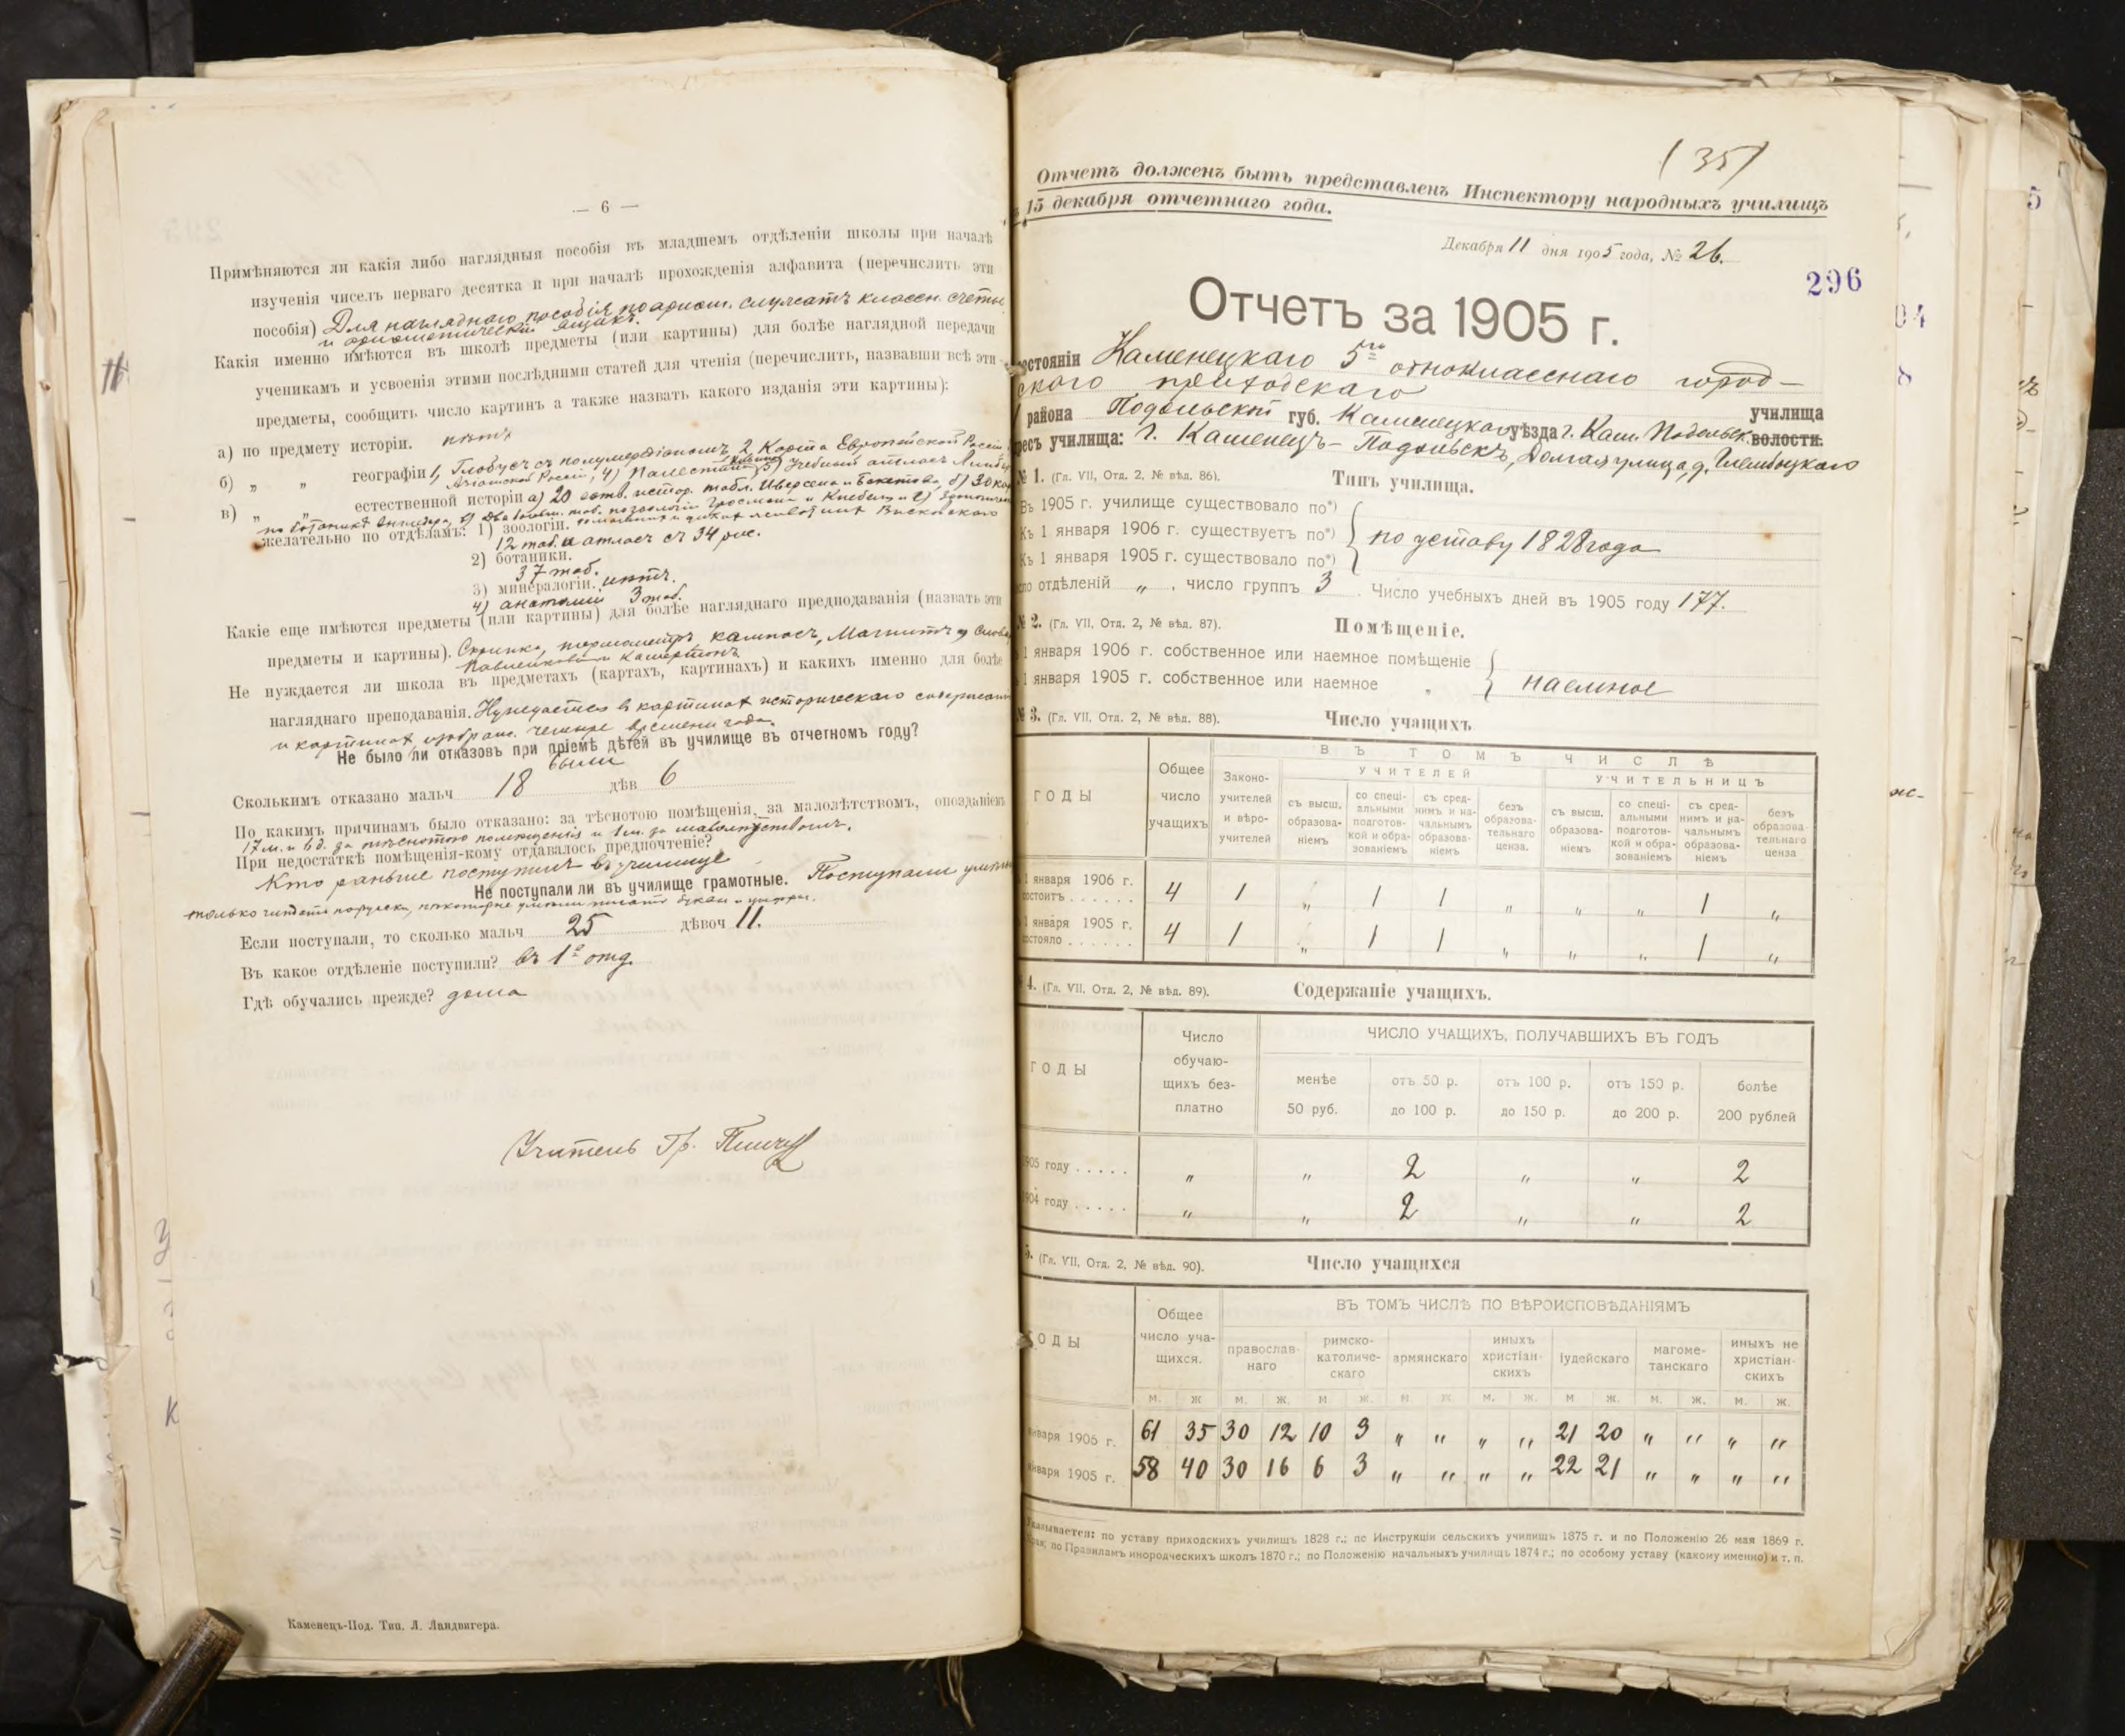 — 6 —
Примѣняются ли какія либо наглядныя пособія въ младшемъ отдѣленіи школы при началѣ
изученія чиселъ перваго десятка и при началѣ прохожденія алфавита (перечислить эти
пособія) Для нагляднаго пособія по ариѳм. служатъ классн. счеты
и ариѳметическій ящикъ.
Какія именно имѣются въ школѣ предметы (или картины) для болѣе наглядной передачи
ученикамъ и усвоенія этими послѣдними статей для чтенія (перечислить, назвавши всѣ эти
предметы, сообщить число картинъ а также назвать какого изданія эти картины):
а) по предмету исторіи. нѣтъ
б) „ „ географіи 1, Глобусъ съ полумеридіаномъ, 2, Карта Европейской Россіи
Азіатской Россіи, 4) Палестины 5) Учебный атласъ
в) „ „ естественной исторіи а) 20 еств. истор. табл. Иверсена и Бекетова, б) 30
по ботаникѣ
желательно по отдѣламъ: 1) зоологіи.
12 таб. и атласъ съ 34 рис.
2) ботаники.
37 таб.
3) минералогіи. нѣтъ.
4) анатоміи 3 таб.
Какіе еще имѣются предметы (или картины) для болѣе нагляднаго предподаванія (назвать эти
предметы и картины). Скрипка, термометръ, компасъ, Магнитъ
Павленкова и Камертонъ
Не нуждается ли школа въ предметахъ (картахъ, картинахъ) и какихъ именно для болѣе
нагляднаго преподаванія. Нуждается в картинах историческаго содержанія
и картинах изображ. четыре времени года.
Не было ли отказовъ при пріемѣ дѣтей въ училище въ отчетномъ году?
были
Сколькимъ отказано мальч 18 дѣв 6
По какимъ причинамъ было отказано: за тѣснотою помѣщенія, за малолѣтствомъ, опозданіемъ
17 м. и 6 д. за тѣснотою помѣщенія и 1 м. за малолѣтством.
При недостаткѣ помѣщенія-кому отдавалось предпочтеніе?
Кто раньше поступилъ въ училище
Не поступали ли въ училище грамотные. Поступали
только читать порусски, нѣкоторые умѣли писать буквы и цифры.
Если поступали, то сколько мальч 25 дѣвоч 11.
Въ какое отдѣленіе поступили? въ 1е отд.
Гдѣ обучались прежде? дома
Учитель Гр.
Каменецъ-Под. Тип. Л. Ландвигера.
(35)
Отчетъ долженъ быть представленъ Инспектору народныхъ училищъ
15 декабря отчетнаго года.
Декабря 11 дня 1905 года, № 26.
296
Отчетъ за 1905 г.
состояніи Каменецкаго 5го однокласснаго город-
ского приходскаго
училища
района Подольской губ. Каменецкаго уѣзда г. Кам. Подольск. волости.
адресъ училища: г. Каменецъ-Подольскъ, Долгая улица, д.
№ 1. (Гл. VII, Отд. 2, № вѣд. 86). Типъ училища.
Въ 1905 г. училище существовало по*)
Къ 1 января 1906 г. существуетъ по*) по уставу 1828 года
Къ 1 января 1905 г. существовало по*)
число отдѣленій „ , число группъ 3. Число учебныхъ дней въ 1905 году 177.
№ 2. (Гл. VII, Отд. 2, № вѣд. 87). Помѣщеніе.
1 января 1906 г. собственное или наемное помѣщеніе
1 января 1905 г. собственное или наемное „ наемное
№ 3. (Гл. VII, Отд. 2, № вѣд. 88). Число учащихъ
ГОДЫ Общее число учащихъ ВЪ ТОМЪ ЧИСЛѢ
Законоучителей и вѣроучителей УЧИТЕЛЕЙ УЧИТЕЛЬНИЦЪ
съ высш. образованіемъ со спеціальными подготовкой и образованіемъ съ среднимъ и начальнымъ образованіемъ безъ образовательнаго ценза. съ высш. образованіемъ со спеціальными подготовкой и образованіемъ съ среднимъ и начальнымъ образованіемъ безъ образовательнаго ценза
1 января 1906 г. состоитъ . . . . . . 4 1 „ 1 1 „ „ „ 1 „
1 января 1905 г. состояло . . . . . . 4 1 „ 1 1 „ „ „ 1 „
4. (Гл. VII, Отд. 2, № вѣд. 89). Содержаніе учащихъ.
ГОДЫ Число обучающихъ безплатно ЧИСЛО УЧАЩИХЪ, ПОЛУЧАВШИХЪ ВЪ ГОДЪ
менѣе 50 руб. отъ 50 р. до 100 р. отъ 100 р. до 150 р. отъ 150 р. до 200 р. болѣе 200 рублей
1905 году . . . . . „ „ 2 „ „ 2
1904 году . . . . . „ „ 2 „ „ 2
5. (Гл. VII, Отд. 2, № вѣд. 90). Число учащихся
ГОДЫ Общее число учащихся. ВЪ ТОМЪ ЧИСЛѢ ПО ВѢРОИСПОВѢДАНІЯМЪ
православнаго римско-католическаго армянскаго иныхъ христіанскихъ іудейскаго магометанскаго иныхъ не христіанскихъ
м. ж м. ж. м ж. м ж. м. ж. м ж. м. ж. м. ж.
января 1906 г. 61 35 30 12 10 3 „ „ „ „ 21 20 „ „ „ „
января 1905 г. 58 40 30 16 6 3 „ „ „ „ 22 21 „ „ „ „
Указывается: по уставу приходскихъ училищъ 1828 г.; по Инструкціи сельскихъ училищъ 1875 г. и по Положенію 26 мая 1869 г.
края; по Правиламъ инородческихъ школъ 1870 г.; по Положенію начальныхъ училищъ 1874 г.; по особому уставу (какому именно) и т. п.